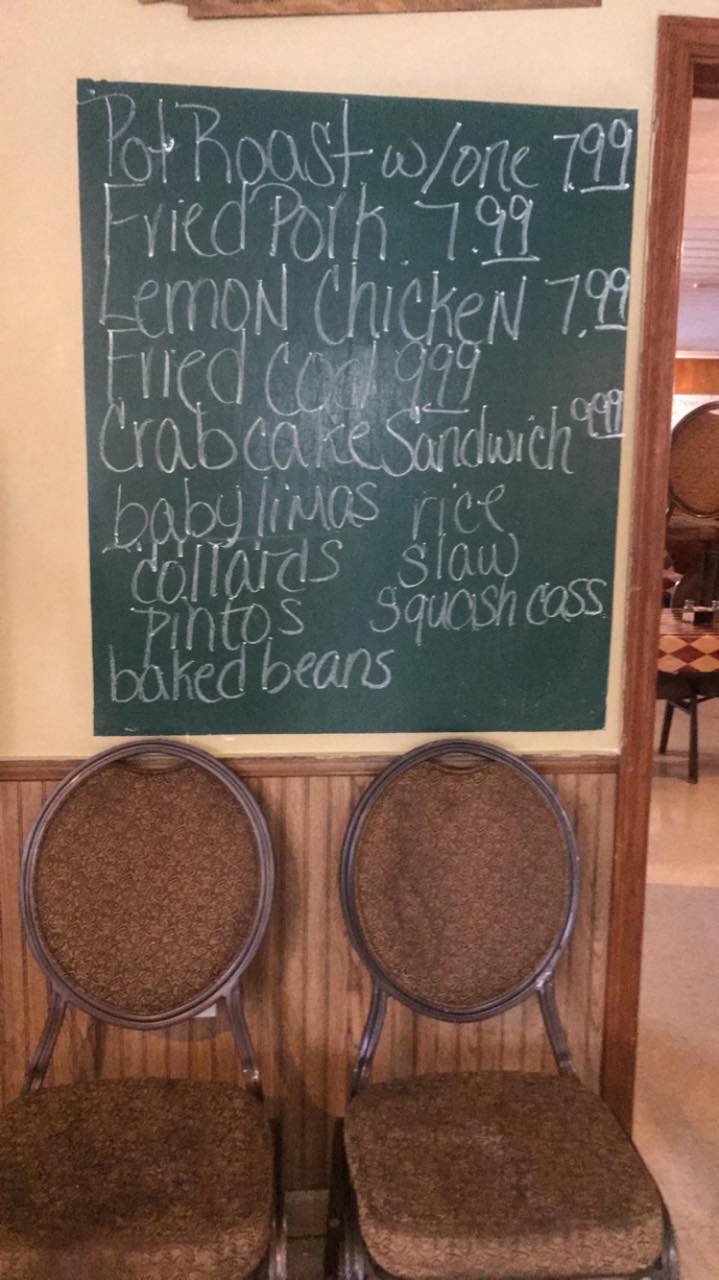 Pot Roast w/one 7.99
Fried Pork 7.99
Lemon Chicken 7.99
Fried Cod 9.99
Crabcake Sandwich 9.99
baby limas rice
collards slaw
pintos squash cass
baked beans